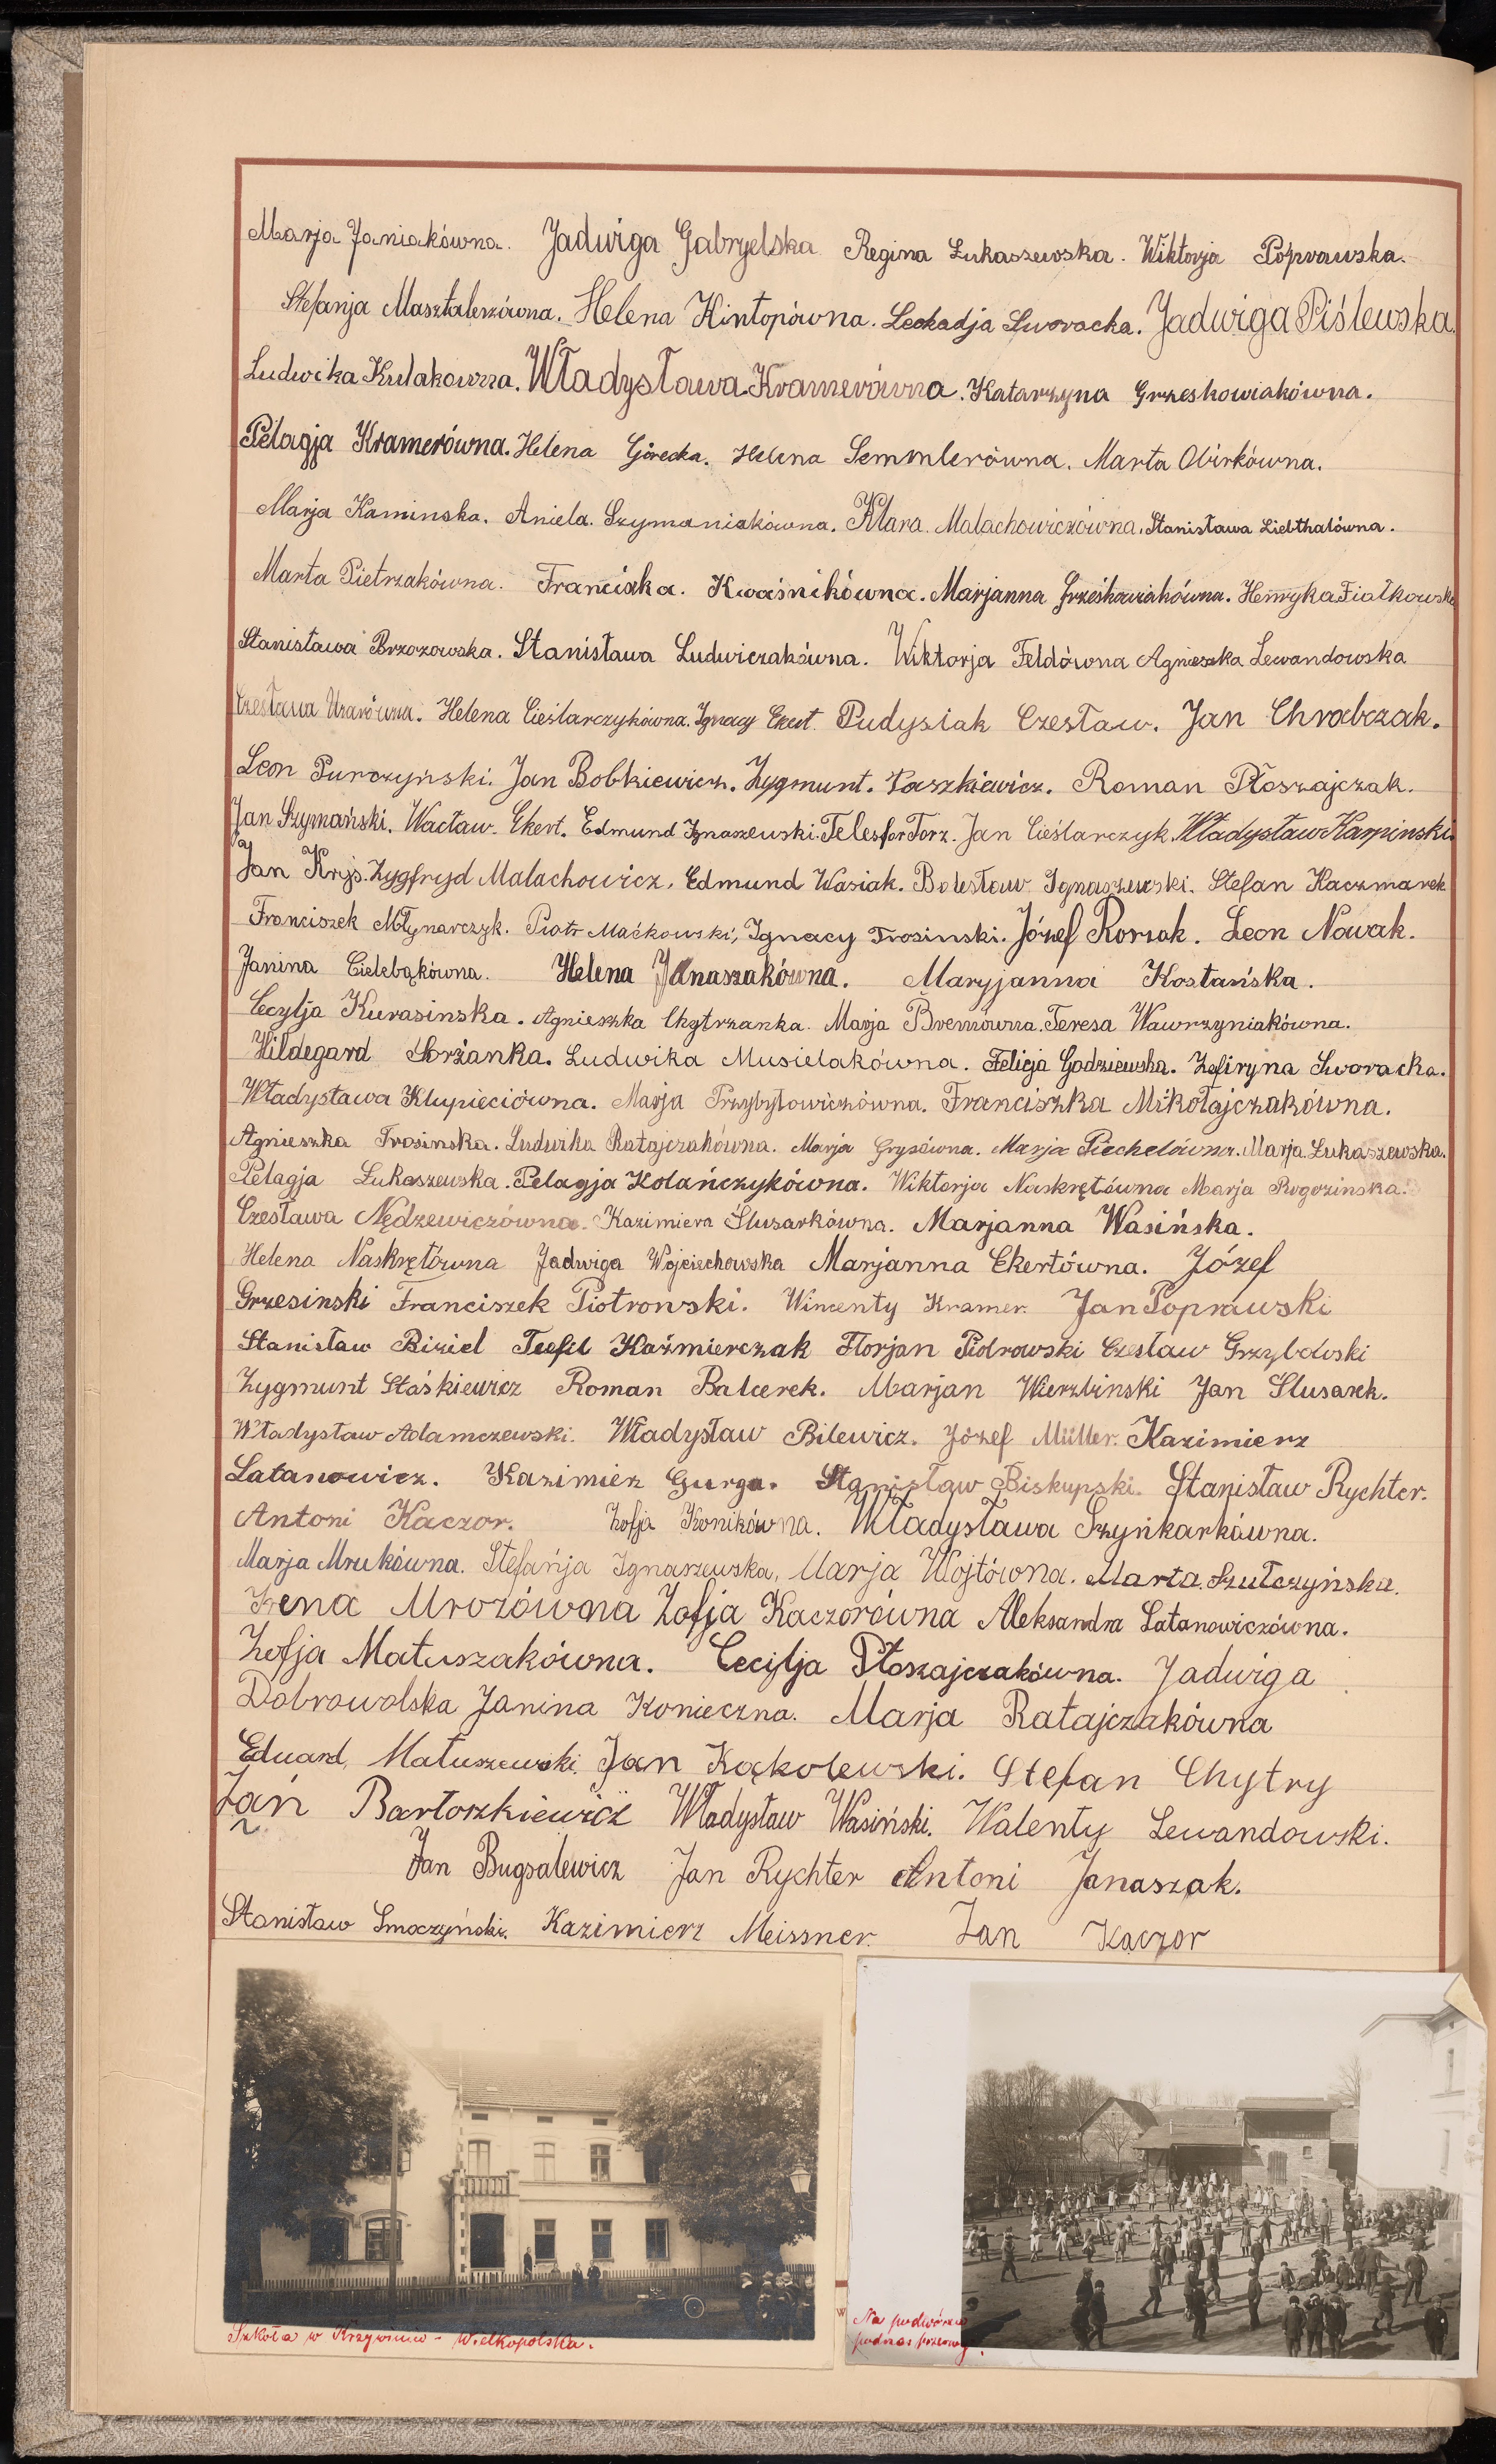 Marja Janiakówna. Jadwiga Gabryelska Regina Łukaszewska. Wiktorja Poprawska.
Stefanja Masztalerzówna. Helena Hintopówna. Leokadja Sworacka. Jadwiga Piślewska.
Ludwika Kulakowna. Władysława Kramerówna. Katarzyna Grzeskowiakówna.
Pelagja Kramerówna. Helena Górecka. Helena Semmlerówna. Marta Obirkówna.
Marja Kaminska. Aniela. Szymaniakówna. Klara. Malachowiczówna. Stanisława Liebthalówna.
Marta Pietrzakówna. Franciszka. Kwaśnikówna. Marjanna Grześkowiakówna. Henryka Fiałkowska
Stanisława Brzozowska. Stanisława Ludwiczakówna. Wiktorja Feldówna Agnieszka Lewandowska
Czesława Helena Cieślarczykówna. Ignacy Ekert. Pudysiak Czesław. Jan Chrabczak.
Leon Purczyński. Jan Bobkiewicz. Zygmunt. Taszkiewicz. Roman Płoszajczak.
Jan Szymański. Wacław. Ekert. Edmund Ignaszewski. Telesfor Torz. Jan Cieślarczyk. Władysław Karpinski.
Jan Kryś. Zygfryd Malachowicz. Edmund Wasiak. Bolesław Ignaszewski. Stefan Kaczmarek
Franciszek Młynarczyk. Piotr Maćkowski, Ignacy Trosinski. Józef Rorzak. Leon Nowak.
Janina Cielebąkówna. Helena Janaszakówna. Maryjanna Kostańska.
Cecylja Kurasinska. Agnieszka Chytrzanka. Marja Bremówna. Teresa Wawrzyniakówna.
Hildegard Sorżanka. Ludwika Musielakówna. Felicja Godziewska. Zefiryna Sworacka.
Władysława Klupieciówna. Marja Przybyłowiczówna. Franciszka Mikołajczakówna.
Agnieszka Trosinska. Ludwika Ratajczakówna. Marja Grysówna. Marja Piechelówna. Marja Łukaszewska.
Pelagja Łukaszewska. Pelagja Kolańczykówna. Wiktorja Naskrętówna Marja Rogozinska.
Czesława Nędzewiczówna. Kazimiera Ślusarkówna. Marjanna Wasińska.
Helena Naskrętówna Jadwiga Wojciechowska Marjanna Ekertówna. Józef
Grzesinski Franciszek Piotrowski. Wincenty Kramer. Jan Poprawski
Stanisław Biziel Teofil Kaźmierczak Florjan Piotrowski Czesław Grzybowski
Zygmunt Staśkiewicz Roman Balcerek. Marjan Wierzbinski Jan Slusarek.
Władysław Adamczewski. Władysław Bilewicz. Józef Müller. Kazimierz
Latanowicz. Kazimierz Gurga. Stanisław Biskupski. Stanisław Rychter.
Antoni Kaczor. Zofja Konikówna. Władysława Szynkarkówna.
Marja Mrukówna. Stefańja Ignaszewska, Marja Wojtówna. Marta. Szułczyńska.
Irena Mrozówna Zofja Kaczorówna Aleksandra Latanowiczówna.
Zofja Matuszakówna. Cecylja Płoszajczakówna. Jadwiga
Dobrowolska Janina Konieczna. Marja Ratajczakówna
Eduard, Matuszewski. Jan Kąkolewski. Stefan Chytry
Jań Bartoszkiewicz Władysław Wasiński. Walenty Lewandowski.
Jan Bugsalewicz Jan Rychter Antoni Janaszak.
Stanisław Smoczyński. Kazimierz Meissner. Jan Kaczor
Szkoła w Krzywiniu - Wielkopolska.
Na podwórzu
podczas przerwy.